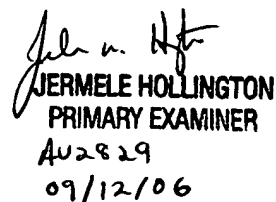 JERMELE HOLLINGTON
PRIMARY EXAMINER
AU2829
09/12/06